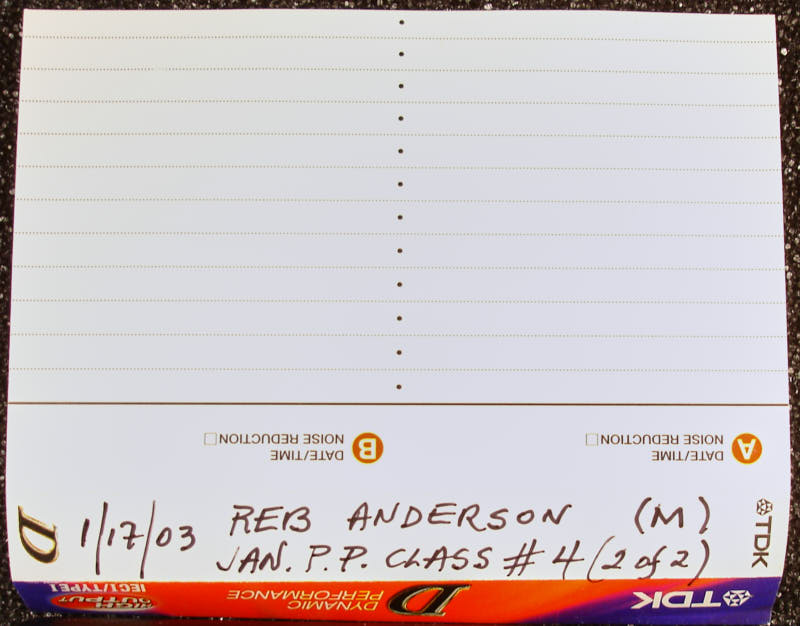 A DATE/TIME
NOISE REDUCTION
B DATE/TIME
NOISE REDUCTION
D 1/17/03 REB ANDERSON (M) TDK
JAN. P.P. CLASS # 4 (2 of 2)
TDK
D DYNAMIC
PERFORMANCE
HIGH
OUTPUT
IECI/TYPE I